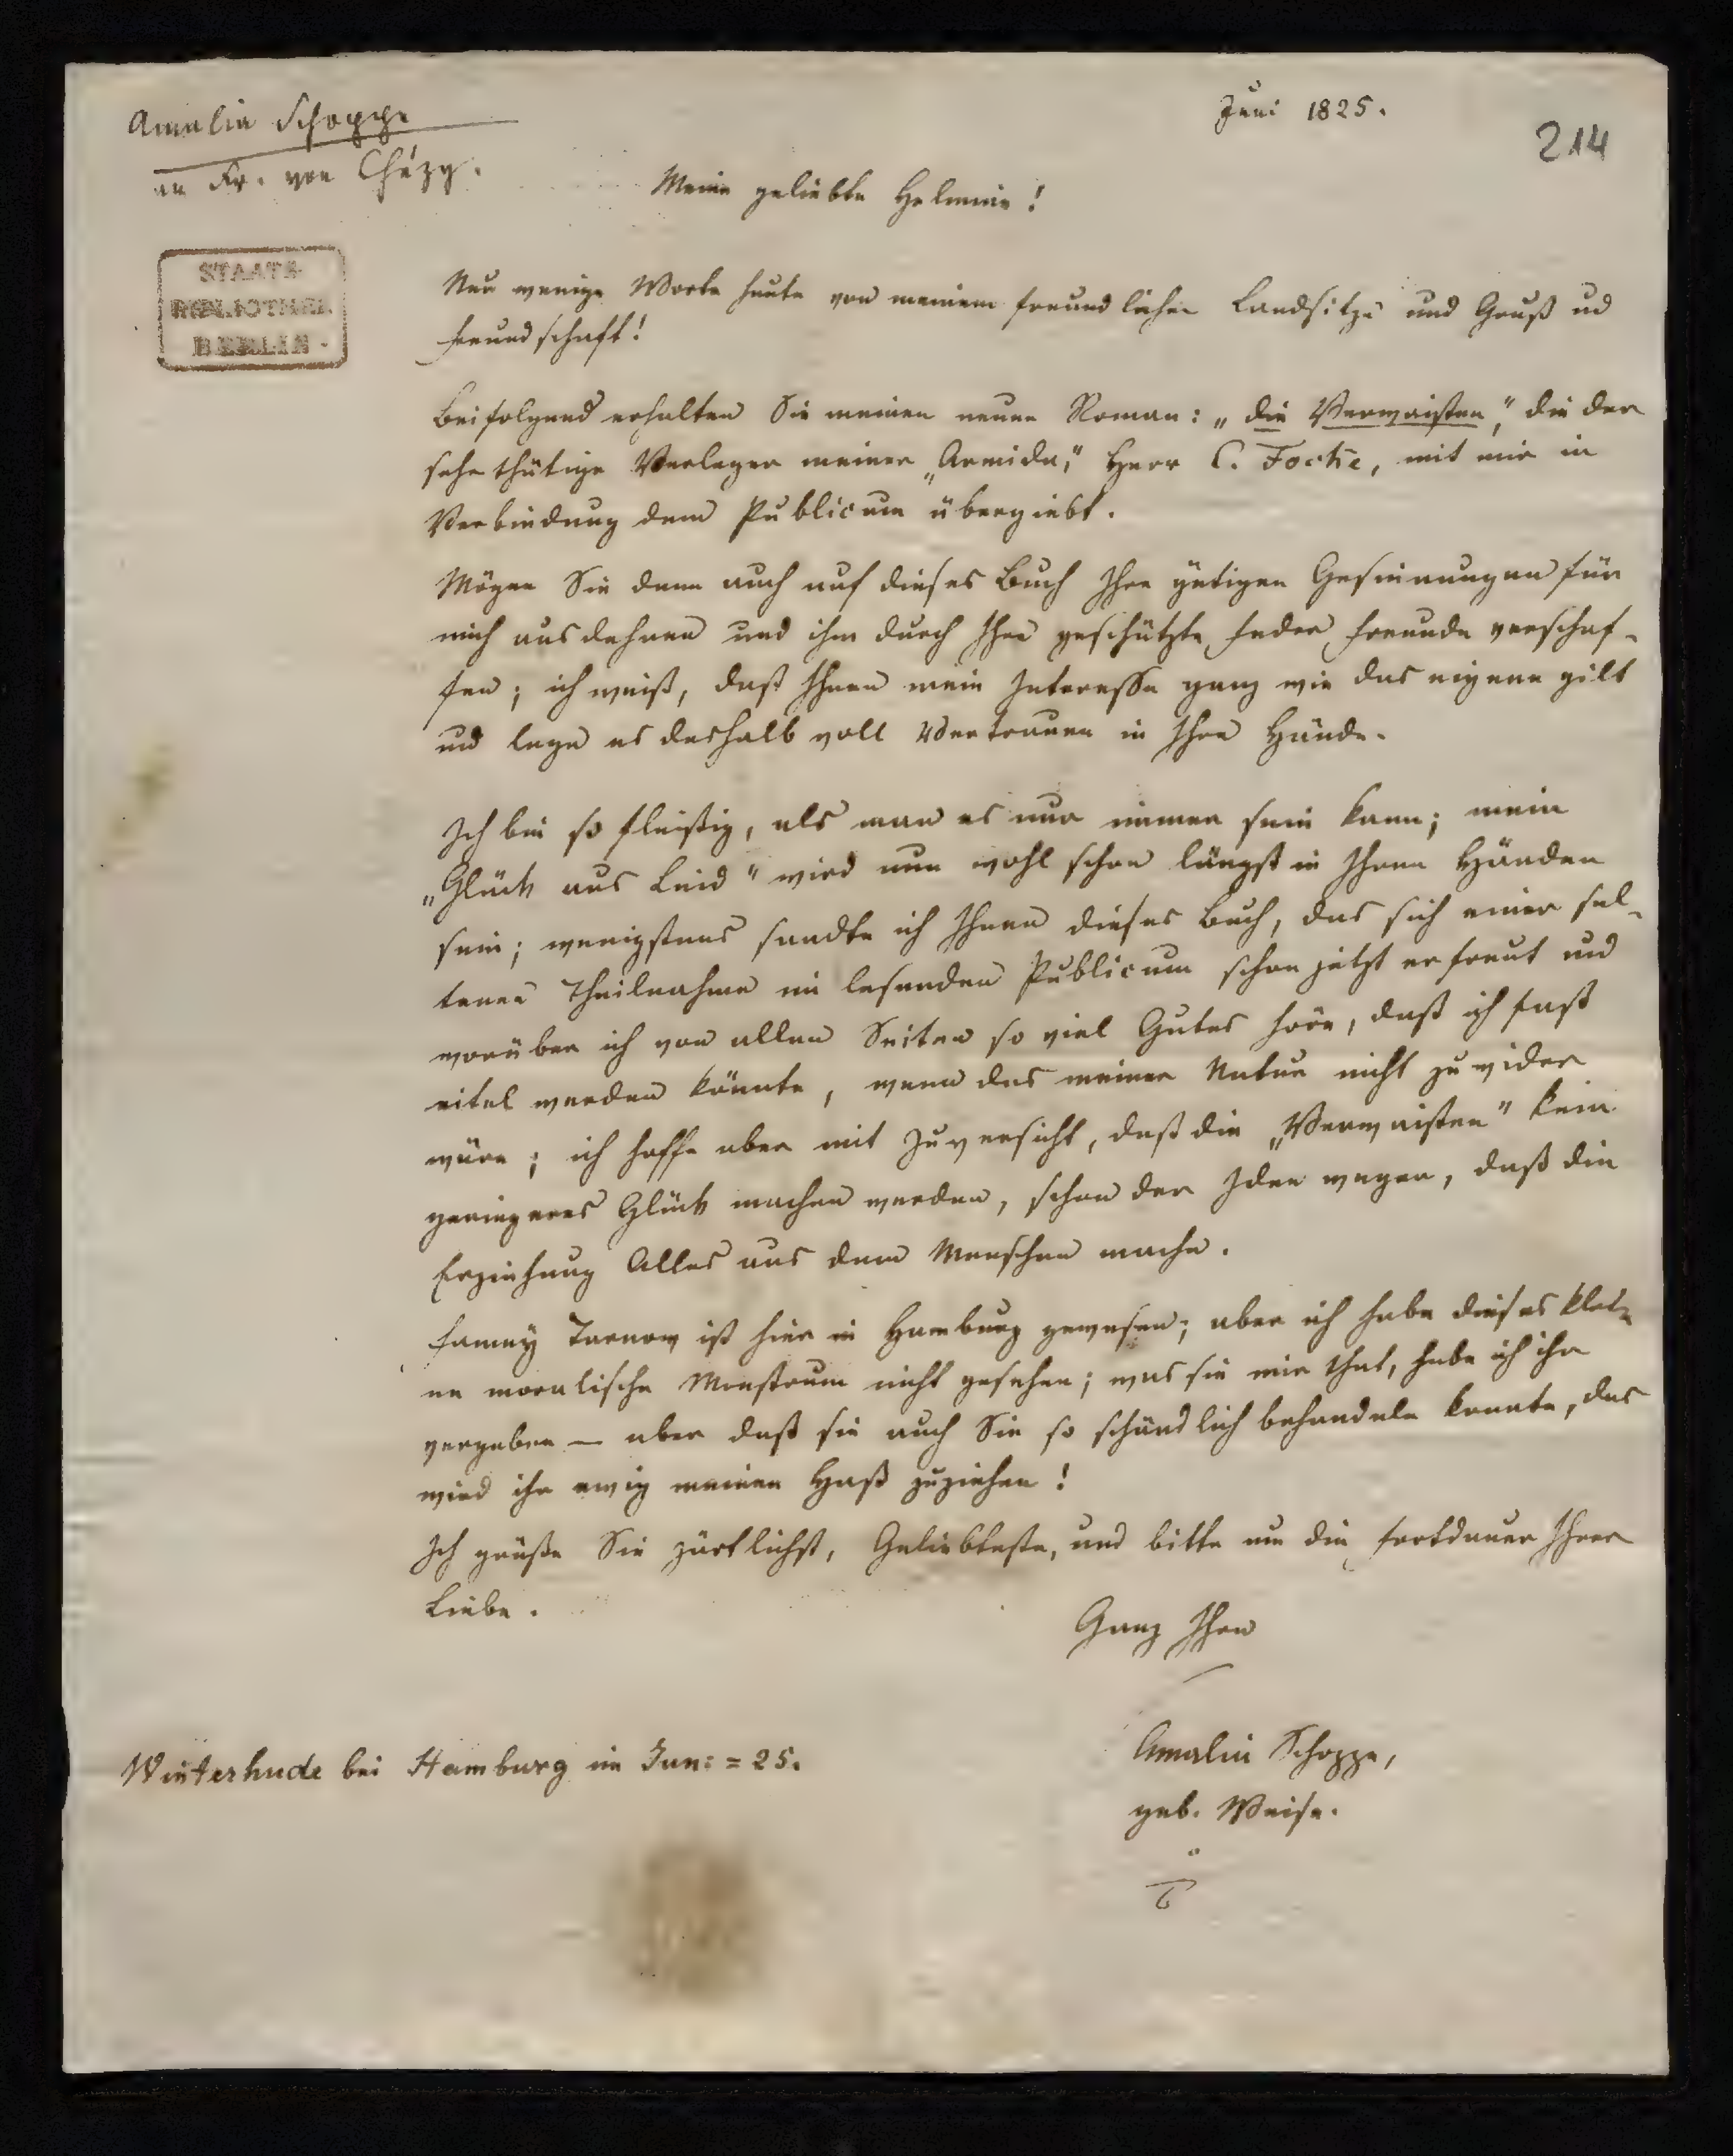 Juni 1825.
214
Amalia Schoppe
an Fr. von Chézy.
Meine geliebte Helmine!
STAATS-
BIBLIOTHEK
BERLIN
Nur wenige Worte heute von meinem freundlichen Landsitze und Gruß und
Freundschaft!
Beifolgend erhalten Sie meinen neuen Roman: „die Verwaisten,“ die der
sehr thätige Verleger meiner „Armida,“ Herr C. Focke, mit mir in
Verbindung dem Publicum übergiebt.
Mögen Sie denn auch auf dieses Buch Ihre gütigen Gesinnungen für
mich ausdehnen und ihm durch Ihre geschätzte Feder Freunde verschaf-
fen; ich weiß, daß Ihnen mein Interesse ganz wie das eigene gilt
und lege es deshalb voll Vertrauen in Ihre Hände.
Ich bin so fleißig, als man es nur immer sein kann; mein
„Glück aus Leid“ wird nun wohl schon längst in Ihren Händen
sein; wenigstens sandte ich Ihnen dieses Buch, das sich einer sel-
tenen Theilnahme im lesenden Publicum schon jetzt erfreut und
worüber ich von allen Seiten so viel Gutes höre, daß ich fast
eitel werden könnte, wenn das meiner Natur nicht zuwider
wäre; ich hoffe aber mit Zuversicht, daß die „Verwaisten“ kein
geringeres Glück machen werden, schon der Idee wegen, daß die
Erziehung Alles aus dem Menschen mache.
Fanny Tarnow ist hier in Hamburg gewesen; aber ich habe dieses klei-
ne moralische Monstrum nicht gesehen; was sie mir that, habe ich ihr
vergeben — aber daß sie auch Sie so schändlich behandeln konnte, das
wird ihr ewig meinen Haß zuziehen!
Ich grüße Sie zärtlichst, Geliebteste, und bitte um die Fortdauer Ihrer
Liebe.
Ganz Ihre
Amalia Schoppe,
geb. Weise.
Winterhude bei Hamburg im Juni = 25.